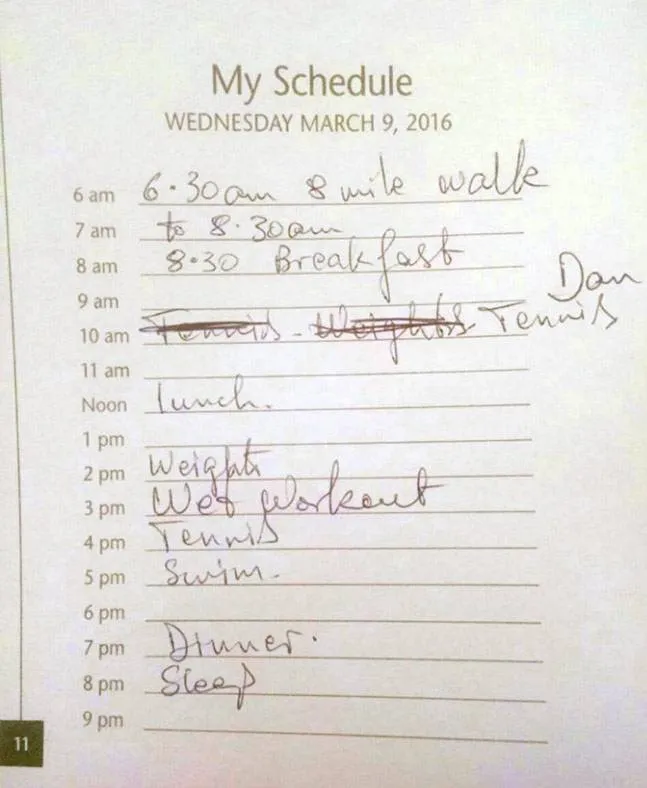 My Schedule
WEDNESDAY MARCH 9, 2016
6 am 6.30am 8 mile walk
7 am to 8.30am
8 am 8.30 Breakfast
9 am Dan
10 am Tennis - Weights Tennis
11 am
Noon Lunch.
1 pm
2 pm Weights
3 pm Wet Workout
4 pm Tennis
5 pm Swim.
6 pm
7 pm Dinner.
8 pm Sleep
9 pm
11